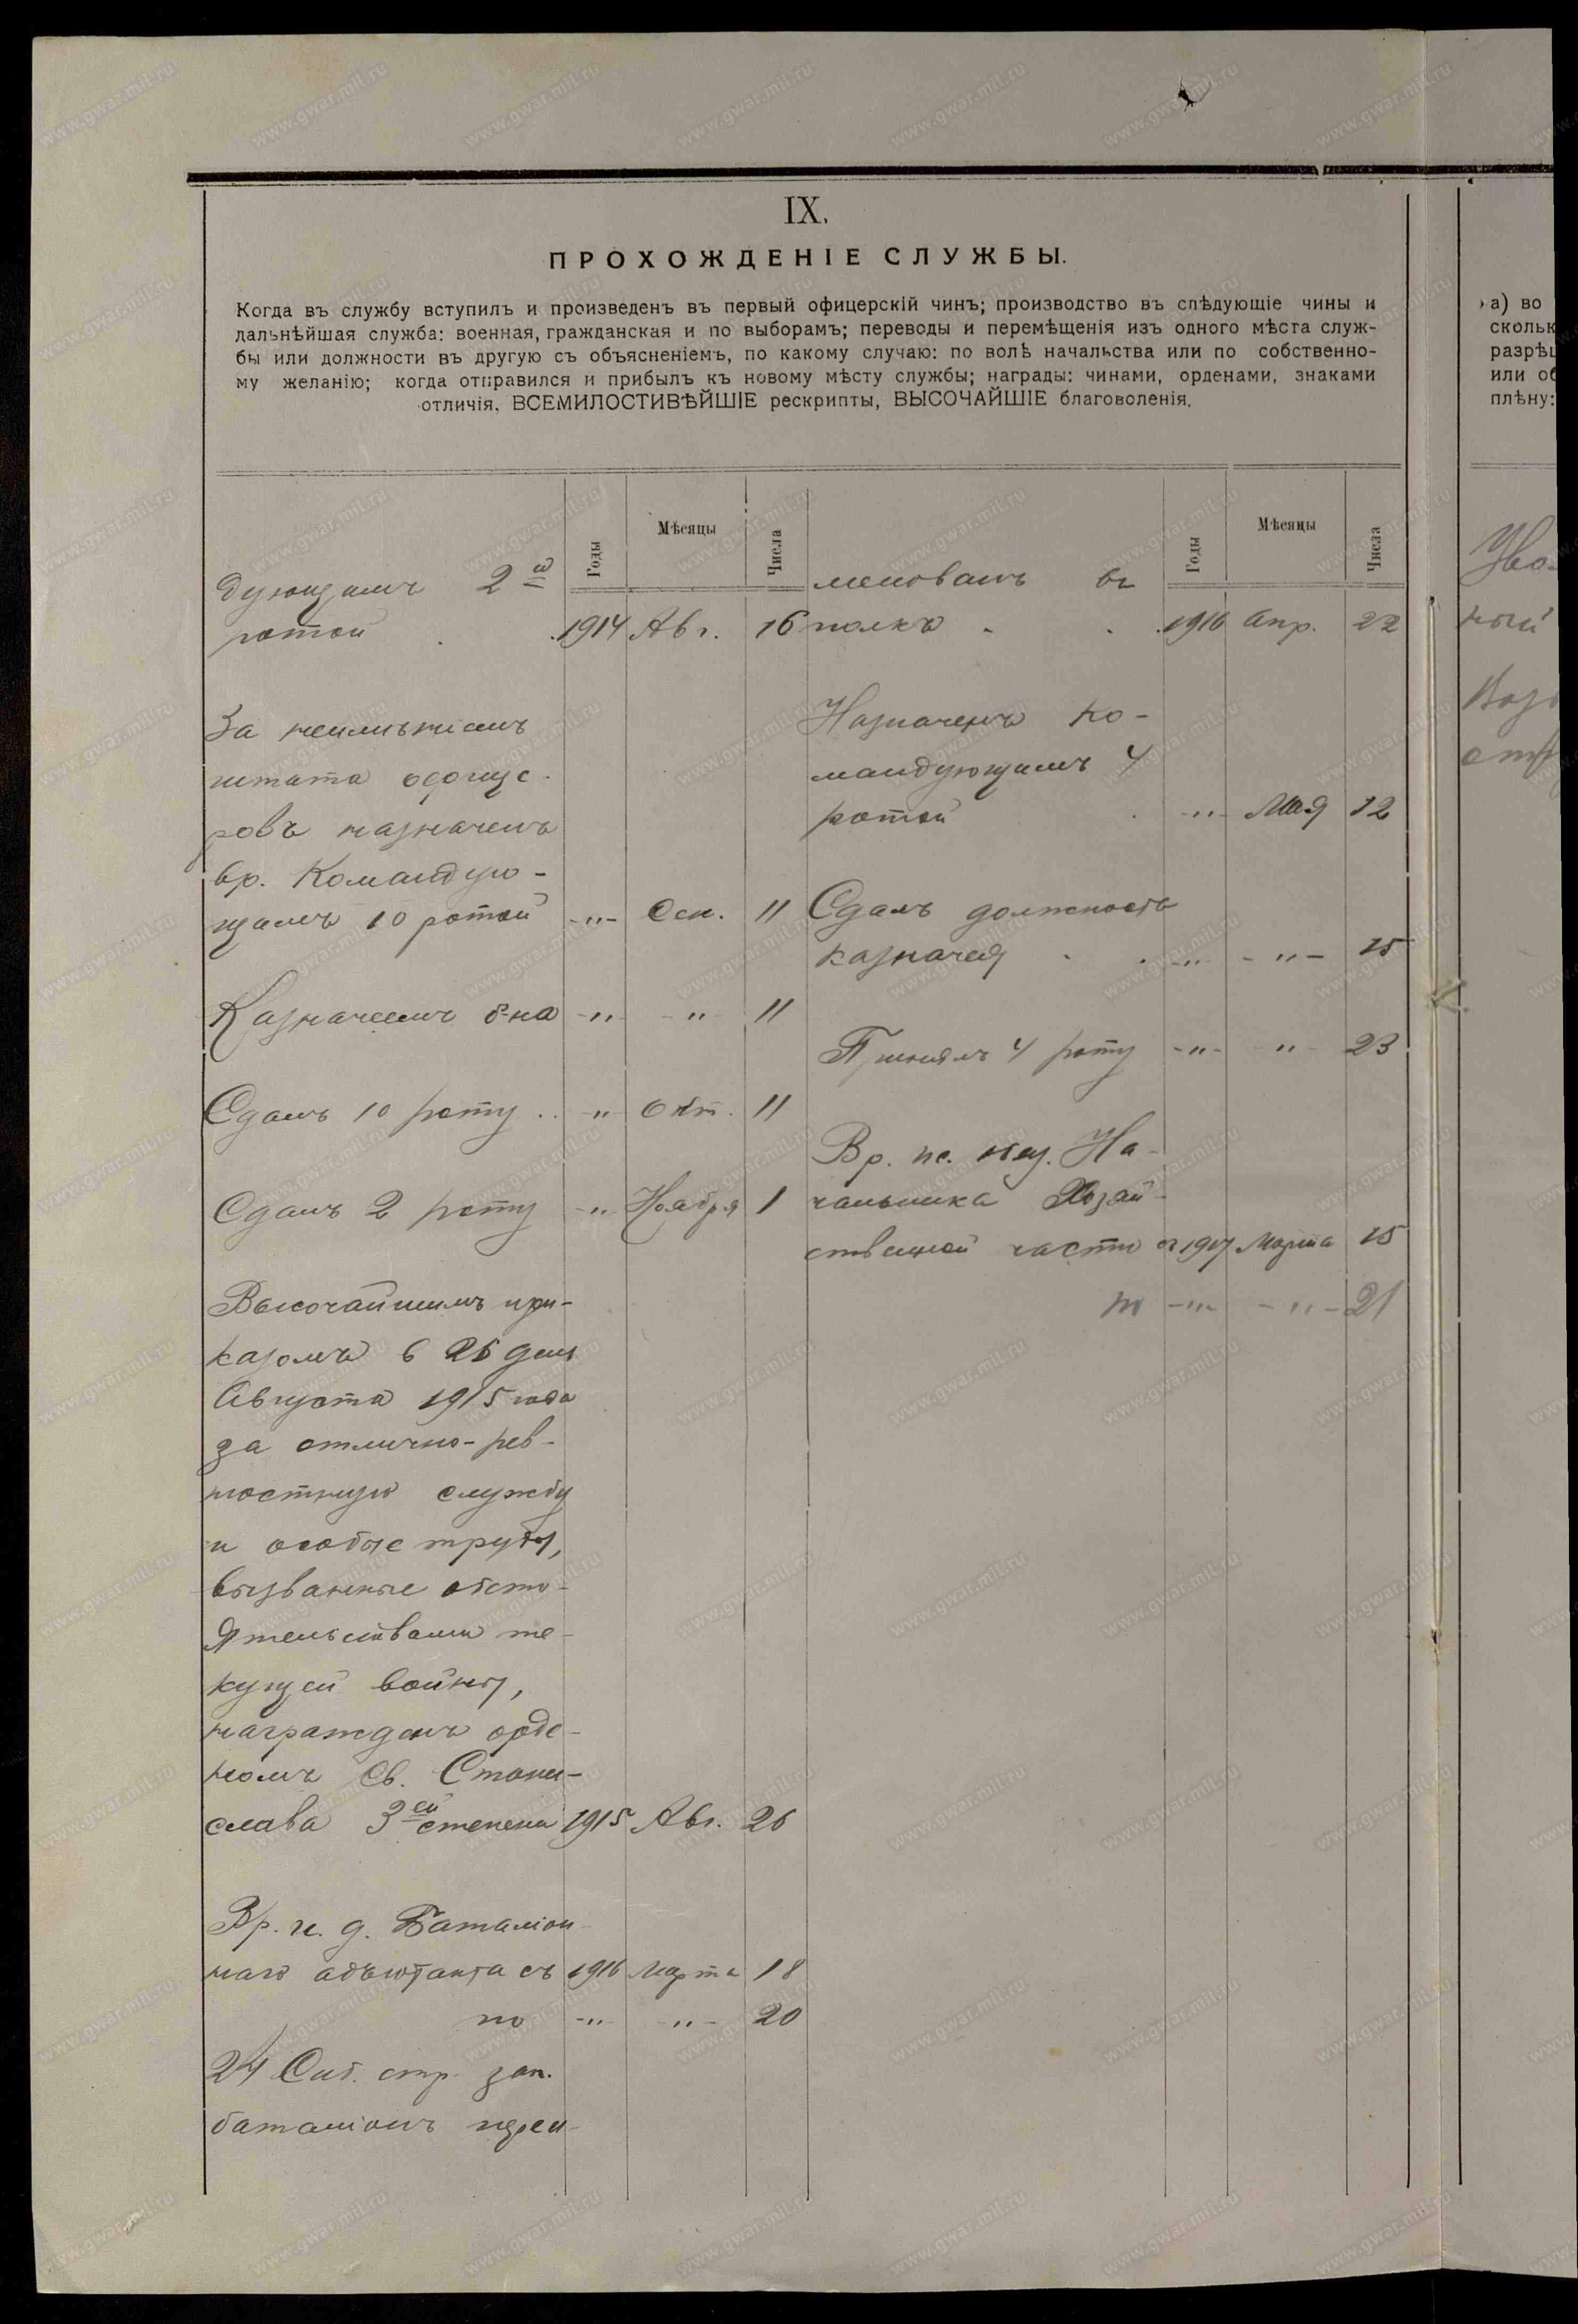 IX.
ПРОХОЖДЕНІЕ СЛУЖБЫ.
Когда въ службу вступилъ и произведенъ въ первый офицерскій чинъ; производство въ слѣдующіе чины и
дальнѣйшая служба: военная, гражданская и по выборамъ; переводы и перемѣщенія изъ одного мѣста служ-
бы или должности въ другую съ объясненіемъ, по какому случаю: по волѣ начальства или по собственно-
му желанію; когда отправился и прибылъ къ новому мѣсту службы; награды: чинами, орденами, знаками
отличія, ВСЕМИЛОСТИВѢЙШІЕ рескрипты, ВЫСОЧАЙШІЕ благоволенія.
Годы Мѣсяцы Числа
дующимъ 2й
ротой . . 1914 Авг. 16
За неимѣніемъ
штата офице-
ровъ назначенъ
вр. Командую-
щимъ 10 ротой -"- Сен. 11
Казначеемъ б-на -"- -"- 11
Сдалъ 10 роту . . -"- Окт. 11
Сдалъ 2 роту -"- Ноября 1
Высочайшимъ при-
казомъ в 26 день
Августа 1915 года
за отлично-рев-
ностную службу
и особые труды,
вызванные обсто-
ятельствами те-
кущей войны,
награжденъ орде-
номъ Св. Стани-
слава 3ей степени 1915 Авг. 26
Вр. и. д. Баталіон-
наго адъютанта съ 1916 Марта 18
по -"- -"- 20
24 Сиб. стр. зап.
баталіонъ переи-
Годы Мѣсяцы Числа
менованъ въ
полкъ . . . 1916 Апр. 22
Назначенъ ко-
мандующимъ 4
ротой . -"- Мая 12
Сдалъ должность
казначея . . -"- -"- 15
Принялъ 4 роту -"- -"- 23
Вр. На-
чальника Хозяй-
ственной части 1917 Марта 15
-"- -"- 21
а) во
скольк
разрѣш
или об
плѣну:
ный